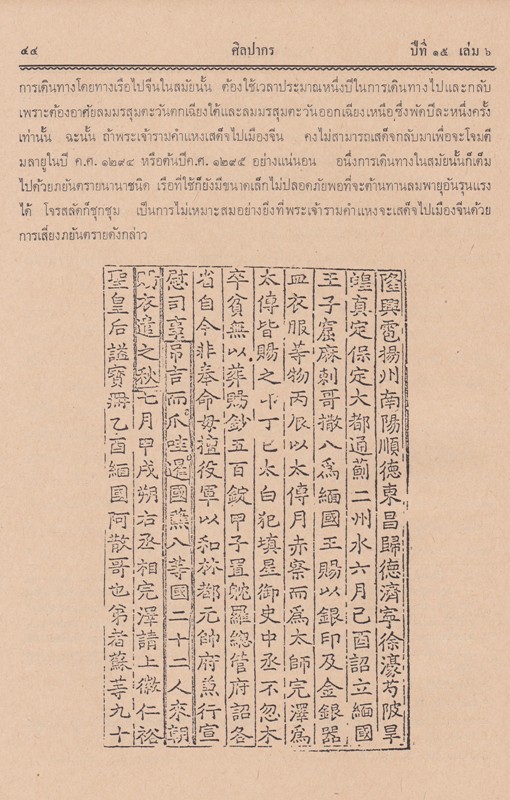 ๔๔ ศิลปากร ปีที่ ๑๕ เล่ม ๖
การเดินทางโดยทางเรือไปจีนในสมัยนั้น ต้องใช้เวลาประมาณหนึ่งปีในการเดินทางไปและกลับ
เพราะต้องอาศัยลมมรสุมตะวันตกเฉียงใต้และลมมรสุมตะวันออกเฉียงเหนือซึ่งพัดปีละหนึ่งครั้ง
เท่านั้น ฉะนั้น ถ้าพระเจ้ารามคำแหงเสด็จไปเมืองจีน คงไม่สามารถเสด็จกลับมาเพื่อจะโจมตี
มลายูในปี ค.ศ. ๑๒๙๔ หรือต้นปีค.ศ. ๑๒๙๕ อย่างแน่นอน อนึ่งการเดินทางในสมัยนั้นก็เต็ม
ไปด้วยภยันตรายนานาชนิด เรือที่ใช้ก็ยังมีขนาดเล็กไม่ปลอดภัยพอที่จะต้านทานลมพายุอันรุนแรง
ได้ โจรสลัดก็ชุกชุม เป็นการไม่เหมาะสมอย่างยิ่งที่พระเจ้ารามคำแหงจะเสด็จไปเมืองจีนด้วย
การเสี่ยงภยันตรายดังกล่าว
隆興雹揚州南陽順德東昌歸德濟寧徐濠芍陂旱
蝗真定保定大都通薊二州水六月己酉詔立緬國
王子窟麻剌哥撒八爲緬國王賜以銀印及金銀器
皿衣服等物丙辰以太傅月赤察而爲太師完澤爲
太傅皆賜之印丁巳太白犯填星御史中丞不忽木
卒貧無以葬賜鈔五百錠甲子置躭羅總管府詔各
省自今非奉命毋擅役軍以和林都元帥府兼行宣
慰司事吊吉而爪哇暹國蘸八等國二十二人來朝
賜衣遣之秋七月甲戌朔右丞相完澤請上徽仁裕
聖皇后謚寶冊乙酉緬國阿散哥也弟者蘇等九十